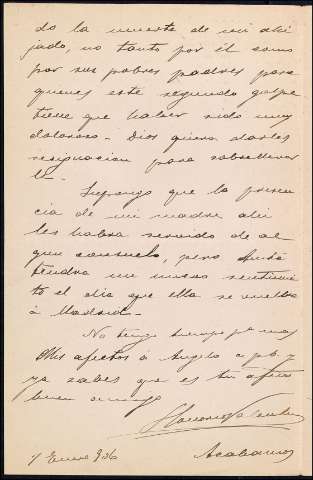 do la muerte de mi ahi
jado, no tanto por él como
por sus pobres padres para
quienes este segundo golpe
tiene que haber sido muy
doloroso. Dios quiera darles
resignacion para sobrellevar
lo.
Supongo que la presen
cia de mi madre ahi
les habra servido de al
gun consuelo, pero
tendra un nuevo sentimien
to el dia que ella se vuelva
á Madrid.
No tengo tiempo pa mas
Mis afectos á Angela y
ya sabes que es tu afmo
buen amigo
7 Enero 906